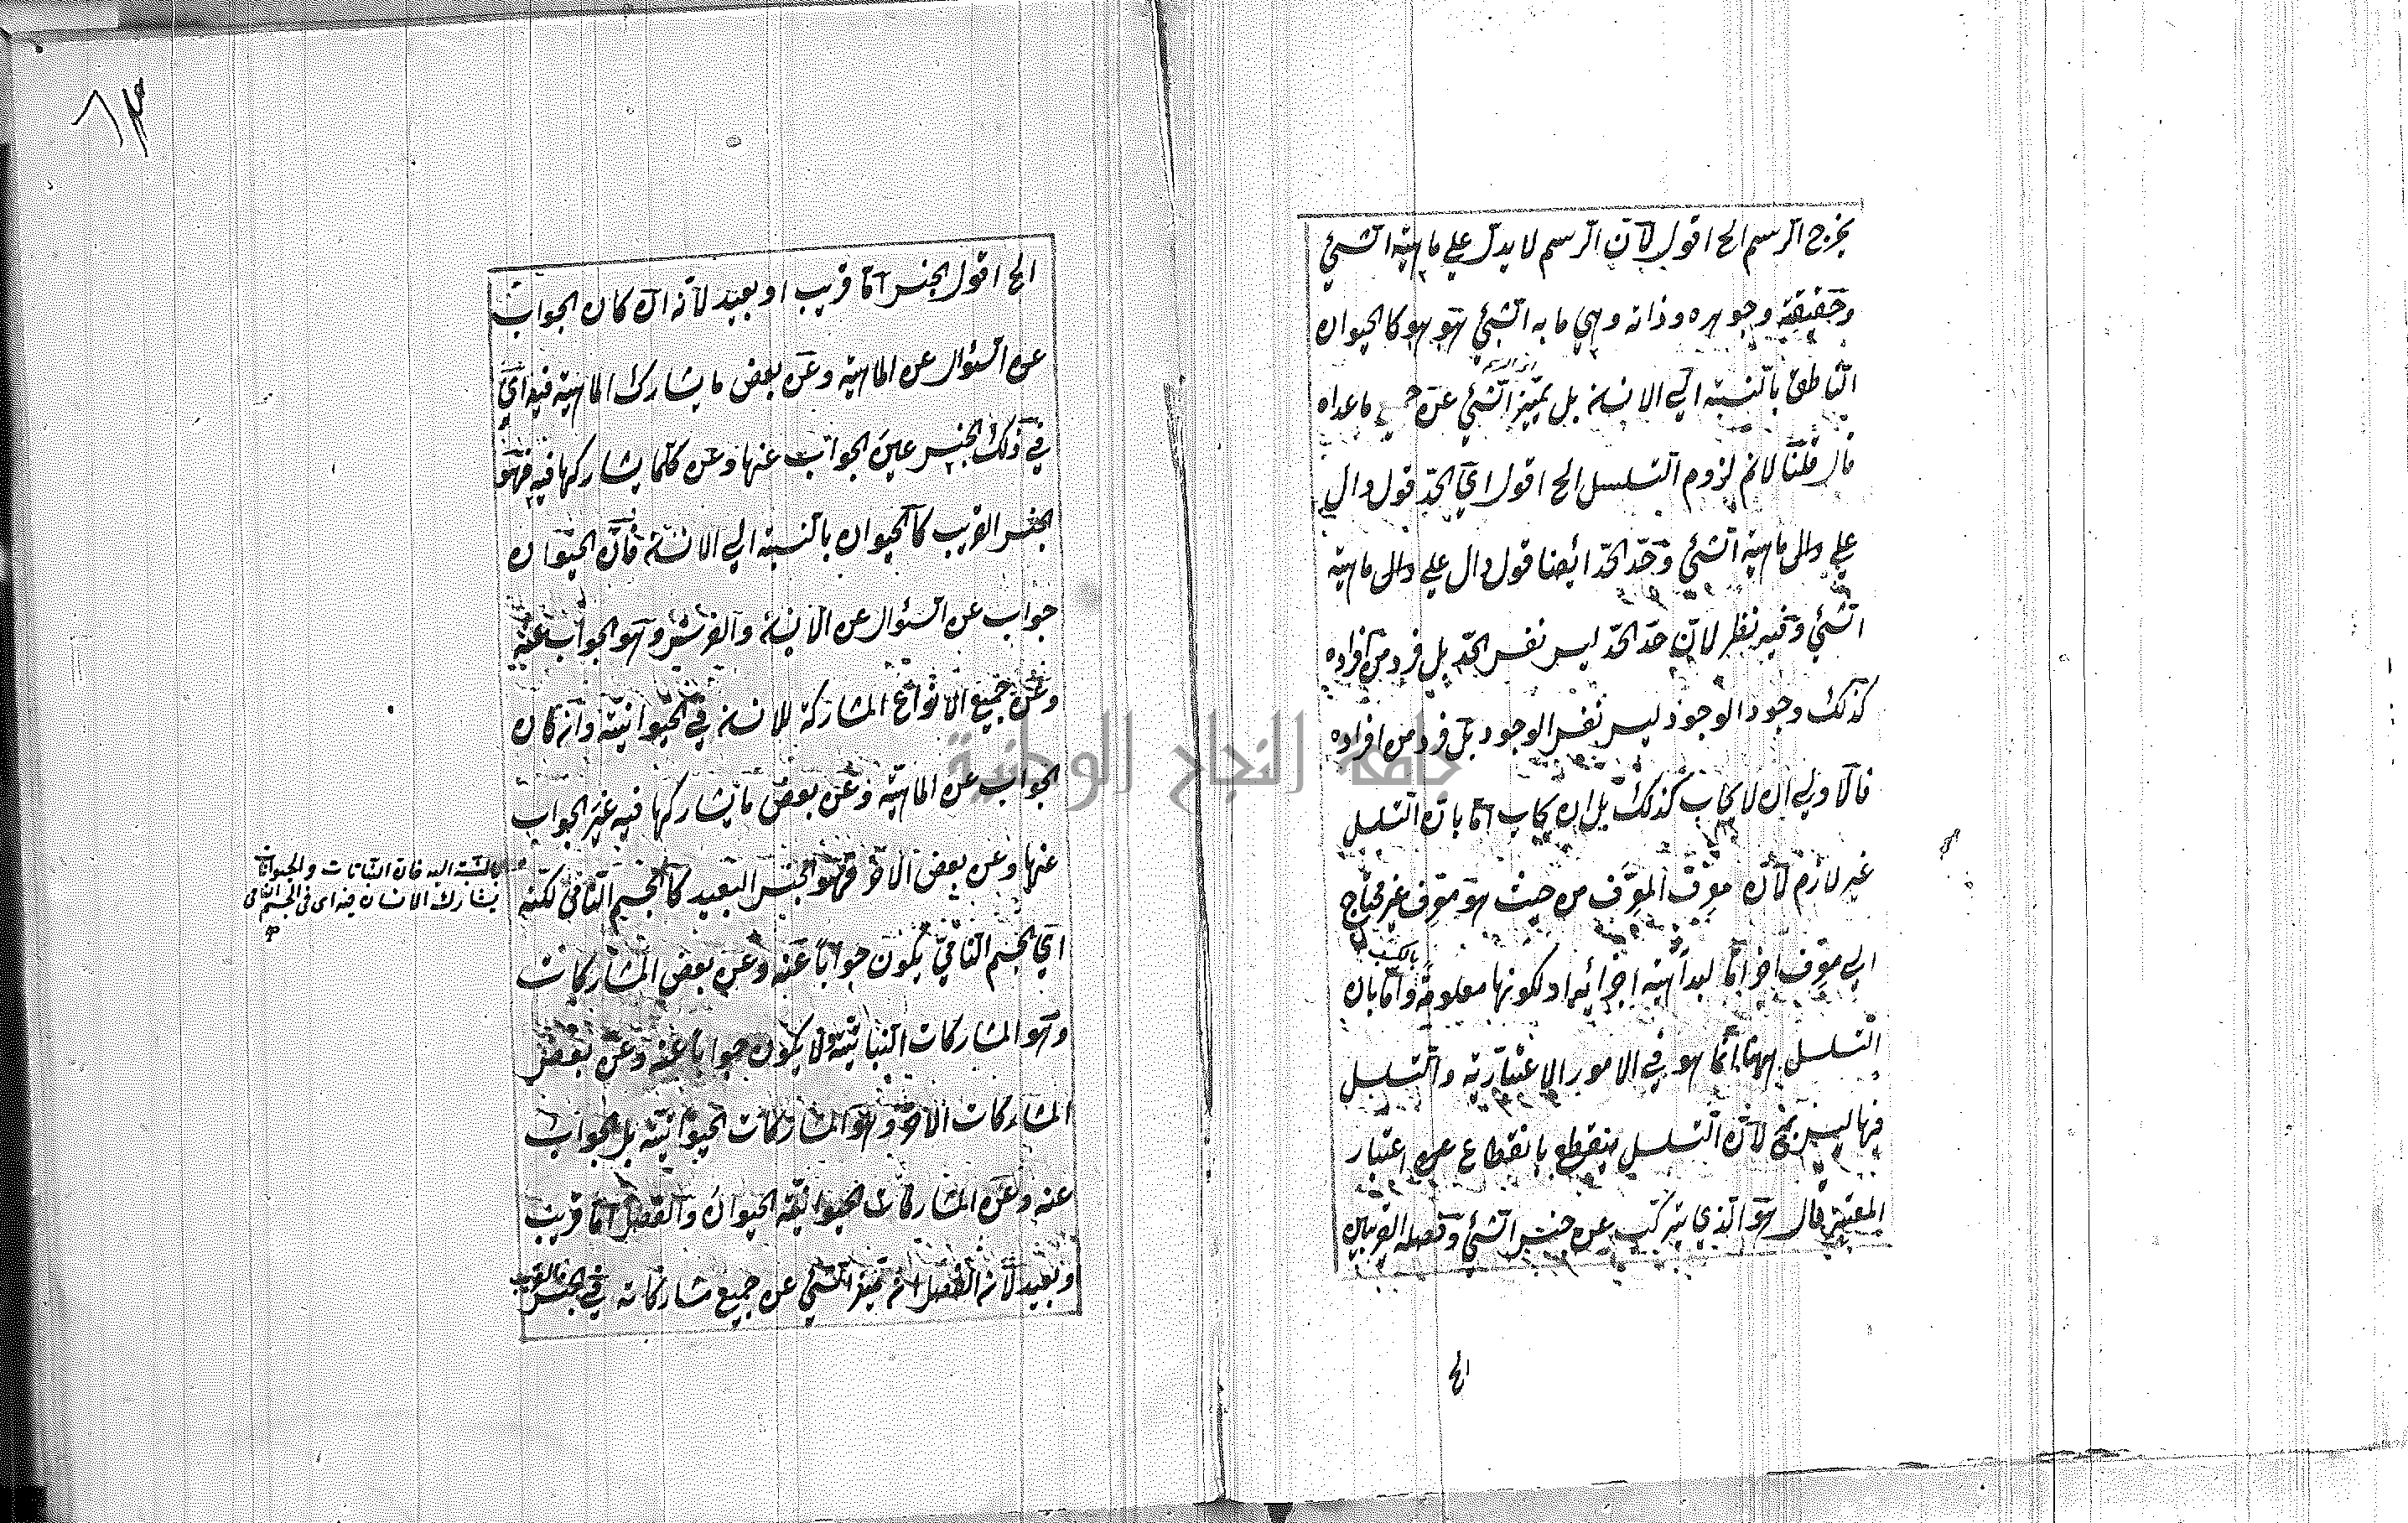 يخرج الرسم الخ اقول لان الرسم لا يدل علي ماهية الشئ
وحقيقته وجوهره وذاته وهي ما به الشئ هو هو كالحيوان
الناطق بالنسبة الي الانسان بل يميز الشئ عن جميع ماعداه
قال قلنا لانم لزوم التسلسل الخ اقول اي الحد قول دال
علي دال ماهية الشئ وحد الحد ايضا قول دال علي دال ماهية
الشئ وفيه نظر لان حد الحد ليس نفس الحد بل فرد من افراده
كذلك وجود الوجود ليس نفس الوجود بل فرد من افراده
فالاولي ان لا يجاب كذلك بل ان يجاب اما بان التسلسل
غير لازم لان معرف المعرف من حيث هو معرف غير محتاج
الي معرف اخر اما لبداهة اجزائه او لكونها معلومة بالكسب واما بان
التسلسل ههنا انما هو في الامور الاعتبارية والتسلسل
فيها ليس بمح لان التسلسل ينقطع بانقطاع اعتبار
المعتبر قال هو الذي يتركب عن جنس الشئ وفصله القريبين
الخ
الخ اقول الجنس اما قريب او بعيد لانه ان كان الجواب
عن السؤال عن الماهية وعن بعض ما يشارك الماهية فيه اي
في ذلك الجنس عين الجواب عنها وعن كل ما يشاركها فيه فهو
الجنس القريب كالحيوان بالنسبة الي الانسان فان الحيوان
جواب عن السؤال عن الانسان والفرس وهو الجواب عنه
وعن جميع الانواع المشاركة للانسان في الحيوانية وان كان
الجواب عن الماهية وعن بعض ما يشاركها فيه غير الجواب
عنها وعن بعض الاخر فهو الجنس البعيد كالجسم النامي لكنه
بالنسبة اليه فان النباتات والحيوانات
يشارك الانسان فيه اي في الجسم النامي
اي الجسم النامي يكون جوابا عنه وعن بعض المشاركات
وهو المشاركات النباتية ولا يكون جوابا عنه وعن بعض
المشاركات الاخر وهو المشاركات الحيوانية بل الجواب
عنه وعن المشاركات الحيوانية الحيوان والفصل اما قريب
وبعيد لانه الفصل ان تميز الشئ عن جميع مشاركاته في الجنس القريب
جامعة النجاح الوطنية